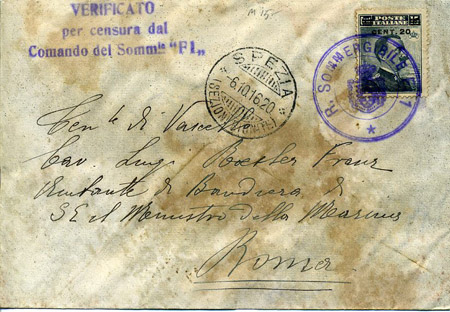 VERIFICATO
per censura dal
Comando del Somm.le "F1"
M 15.
POSTE ITALIANE
CENT. 20
R. SOMMERGIBILE F1
SPEZIA
6.10.16.20
Ten.te di Vascello
Cav. Luigi Roesler Franz
Aiutante di Bandiera di
S E il Ministro della Marina
Roma